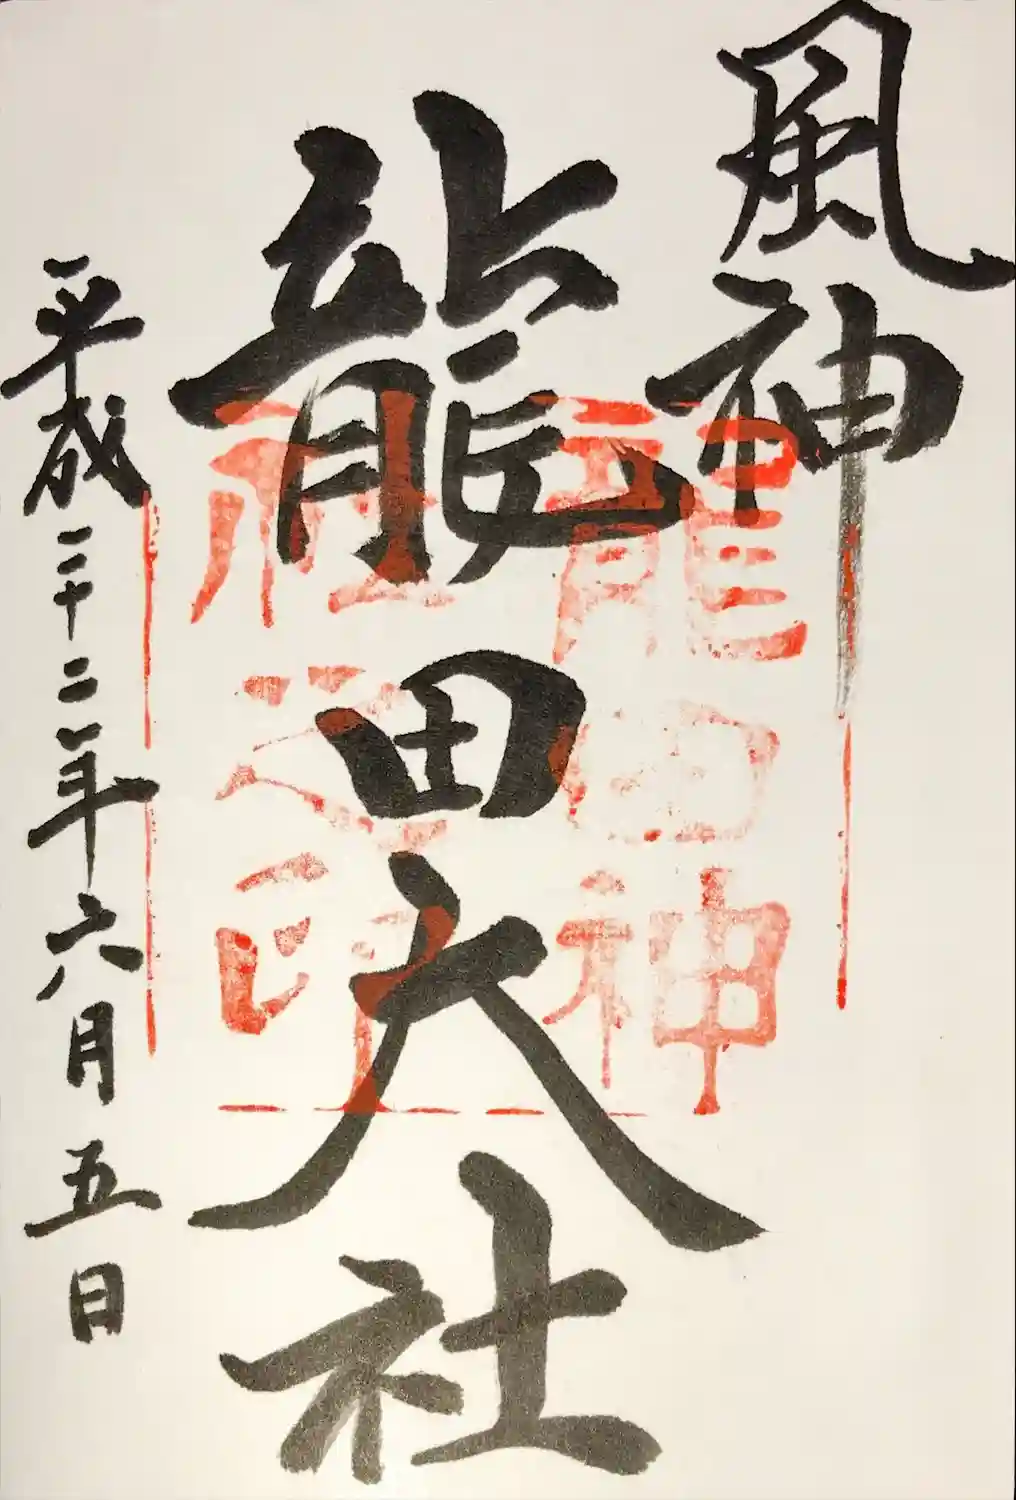 風神
龍田大社
平成二十二年六月五日
龍田神
社之印